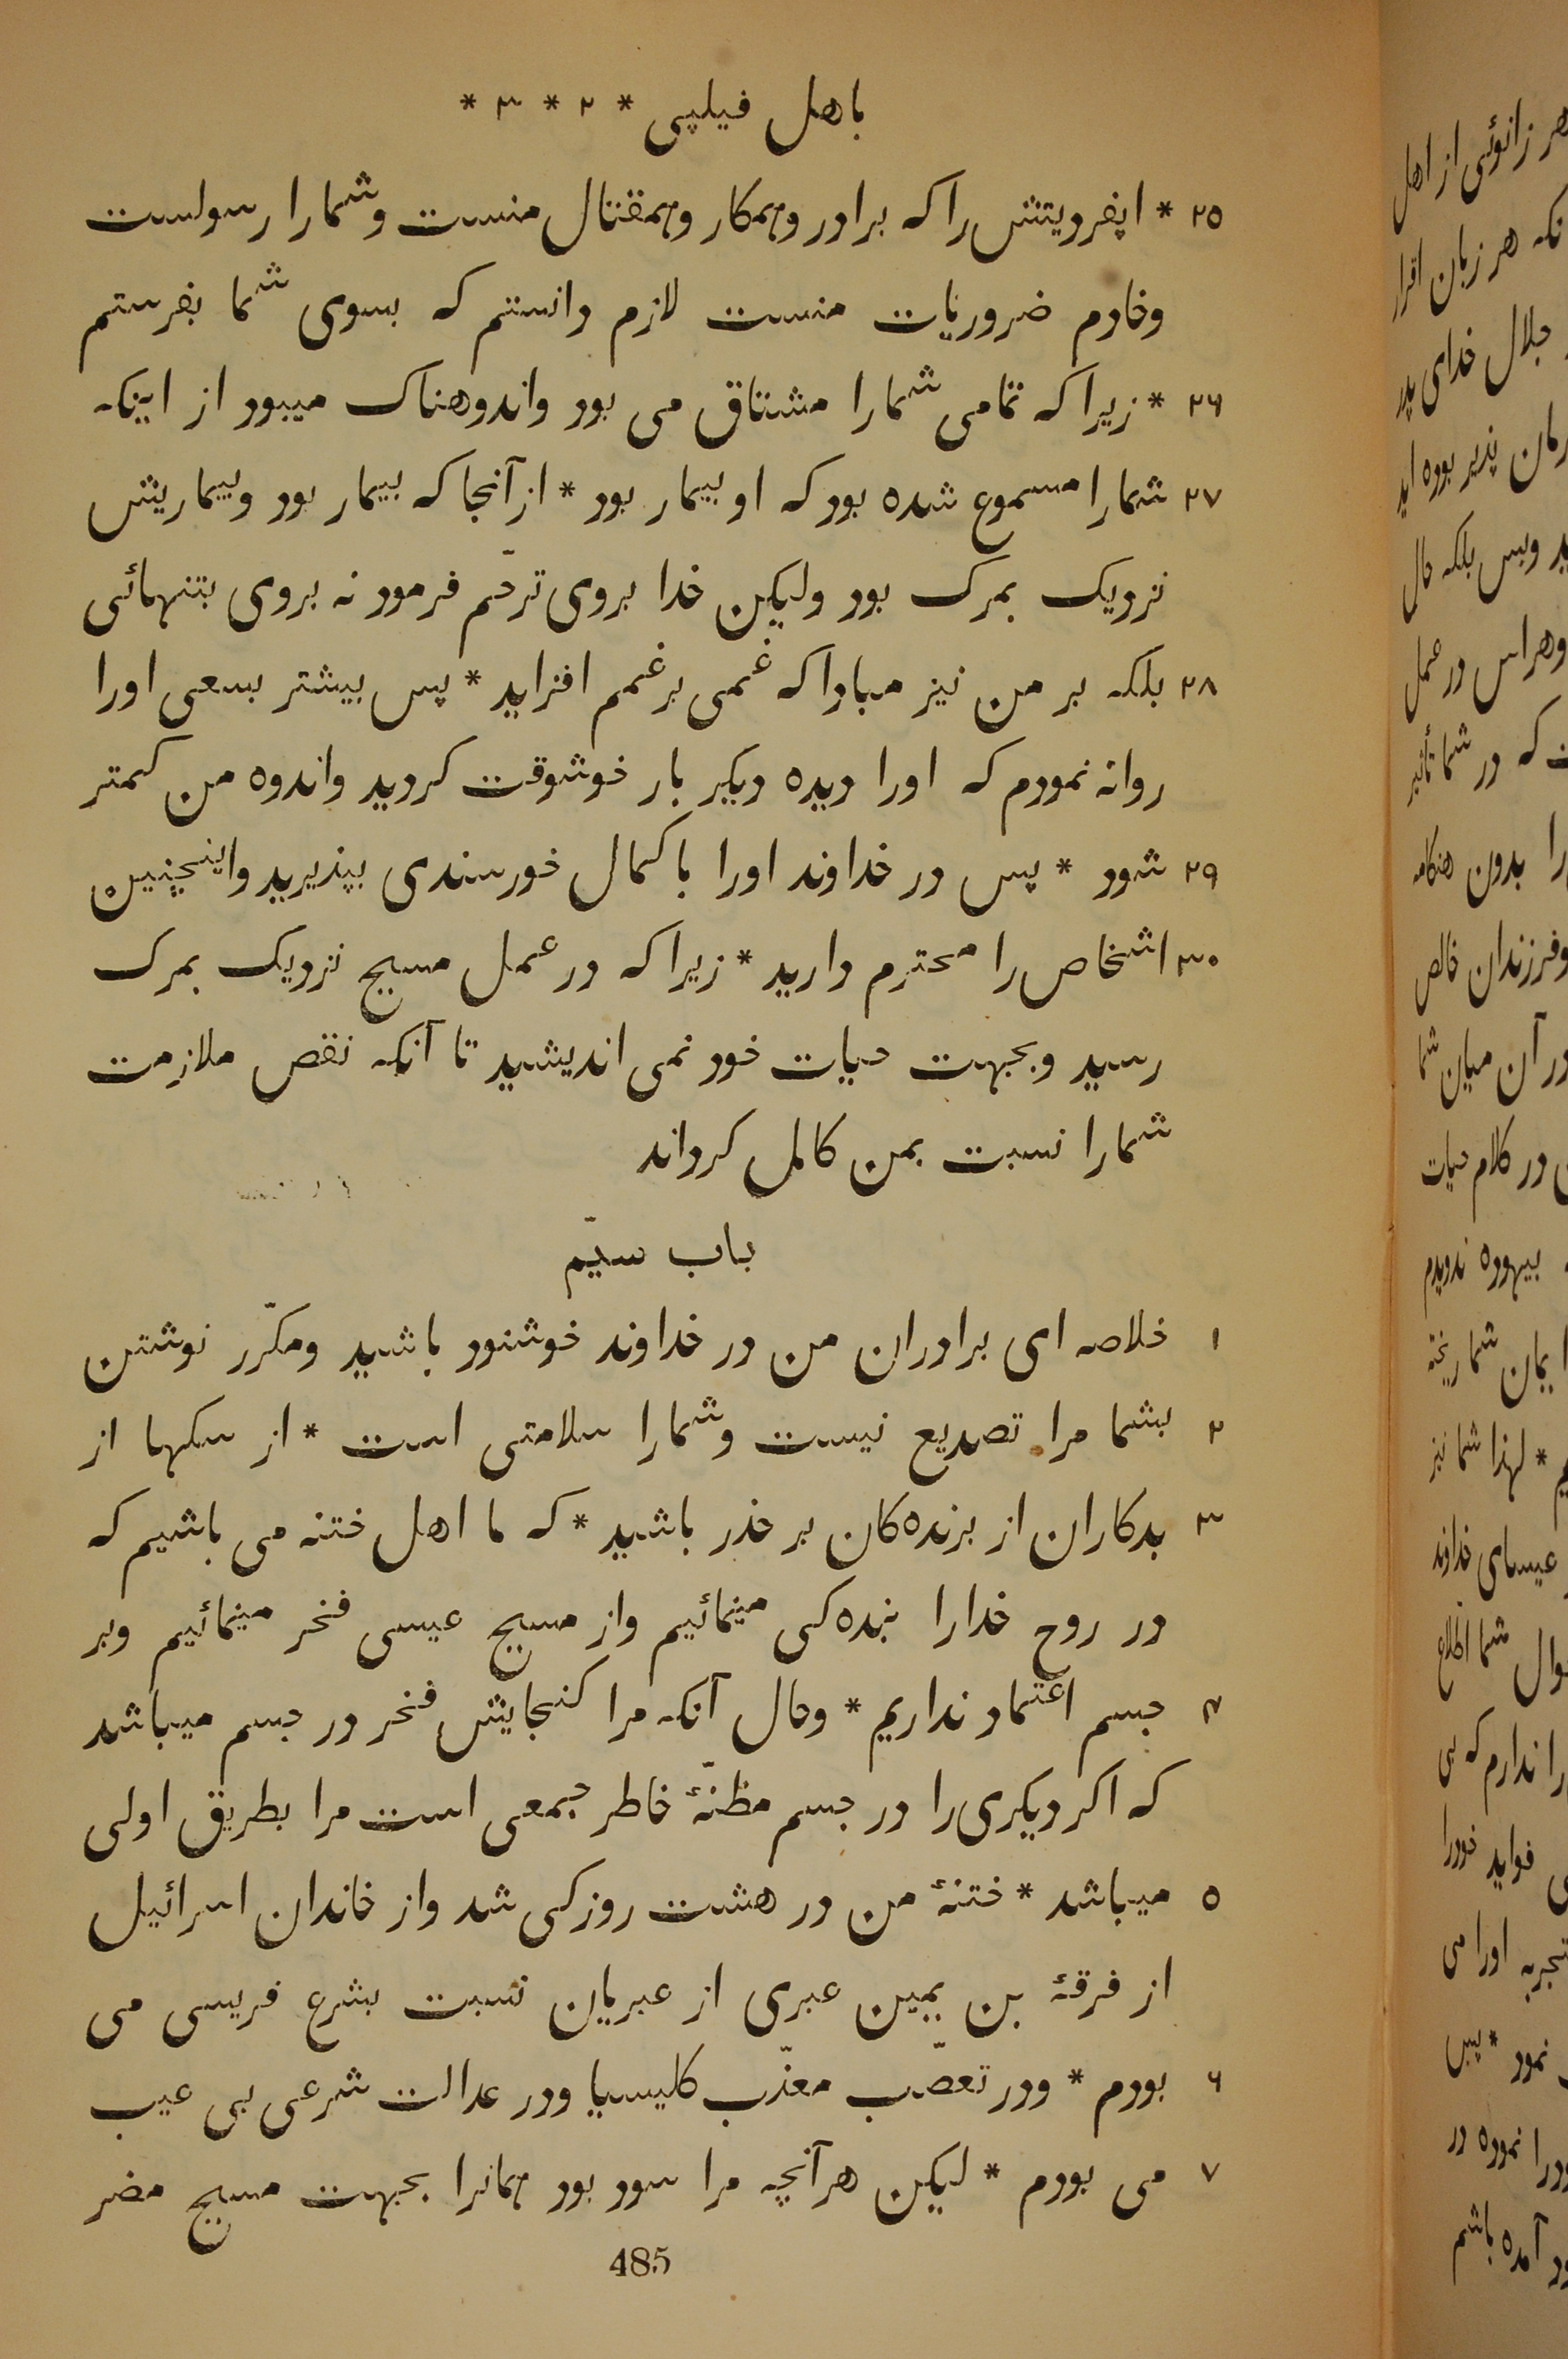 باهل فیلپی * ۲ * ۳ *
۲۵ * اپفرویتش را که برادر وهمکار وهمقتال منست وشمارا رسولست
وخادم ضروریات منست لازم دانستم که بسوی شما بفرستم
۲۶ * زیرا که تمامی شمارا مشتاق می بود واندوهناک میبود از اینکه
۲۷ شمارا مسموع شده بود که او بیمار بود * از آنجا که بیمار بود وبیماریش
نزدیک بمرک بود ولیکن خدا بروی ترحّم فرمود نه بروی بتنهائی
۲۸ بلکه بر من نیز مبادا که غمی بر غمم افزاید * پس بیشتر بسعی اورا
روانه نمودم که اورا دیده دیکر بار خوشوقت کردید واندوه من کمتر
۲۹ شود * پس در خداوند اورا با کمال خورسندی بپذیرید واینچنین
۳۰ اشخاص را محترم دارید * زیرا که در عمل مسیح نزدیک بمرک
رسید وبجهت حیات خود نمی اندیشید تا آنکه نقص ملازمت
شمارا نسبت بمن کامل کرداند
باب سیّم
۱ خلاصه ای برادران من در خداوند خوشنود باشید ومکرّر نوشتن
۲ بشما مرا تصدیع نیست وشمارا سلامتی است * از سکها از
۳ بدکاران از برنده‌کان بر حذر باشید * که ما اهل ختنه می باشیم که
در روح خدارا بنده‌کی مینمائیم واز مسیح عیسی فخر مینمائیم وبر
۴ جسم اعتماد نداریم * وحال آنکه مرا کنجایش فخر در جسم میباشد
که اکر دیکری را در جسم مظنّهٔ خاطر جمعی است مرا بطریق اولی
۵ میباشد * ختنهٔ من در هشت روزکی شد واز خاندان اسرائیل
از فرقهٔ بن یمین عبری از عبریان نسبت بشرع فریسی می
۶ بودم * ودر تعصّب معذّب کلیسیا ودر عدالت شرعی بی عیب
۷ می بودم * لیکن هرآنچه مرا سود بود همانرا بجهت مسیح مضر
485
هر زانوئی از اهل
نکه هر زبان اقرار
جلال خدای پدر
رمان پذیر بوده اید
ید وبس بلکه حال
وهراس در عمل
ت که در شما تأثیر
را بدون هنکامه
وفرزندان خالص
در آن میان شما
در کلام حیات
بیهوده ندویدم
ایمان شما ریخته
یم * لهذا شما نیز
عیسای خداوند
وال شما اطّلاع
را ندارم که بی
ی فواید خودرا
تجربه اورا می
نمود * پس
ودرا نموده در
ود آمده باشم